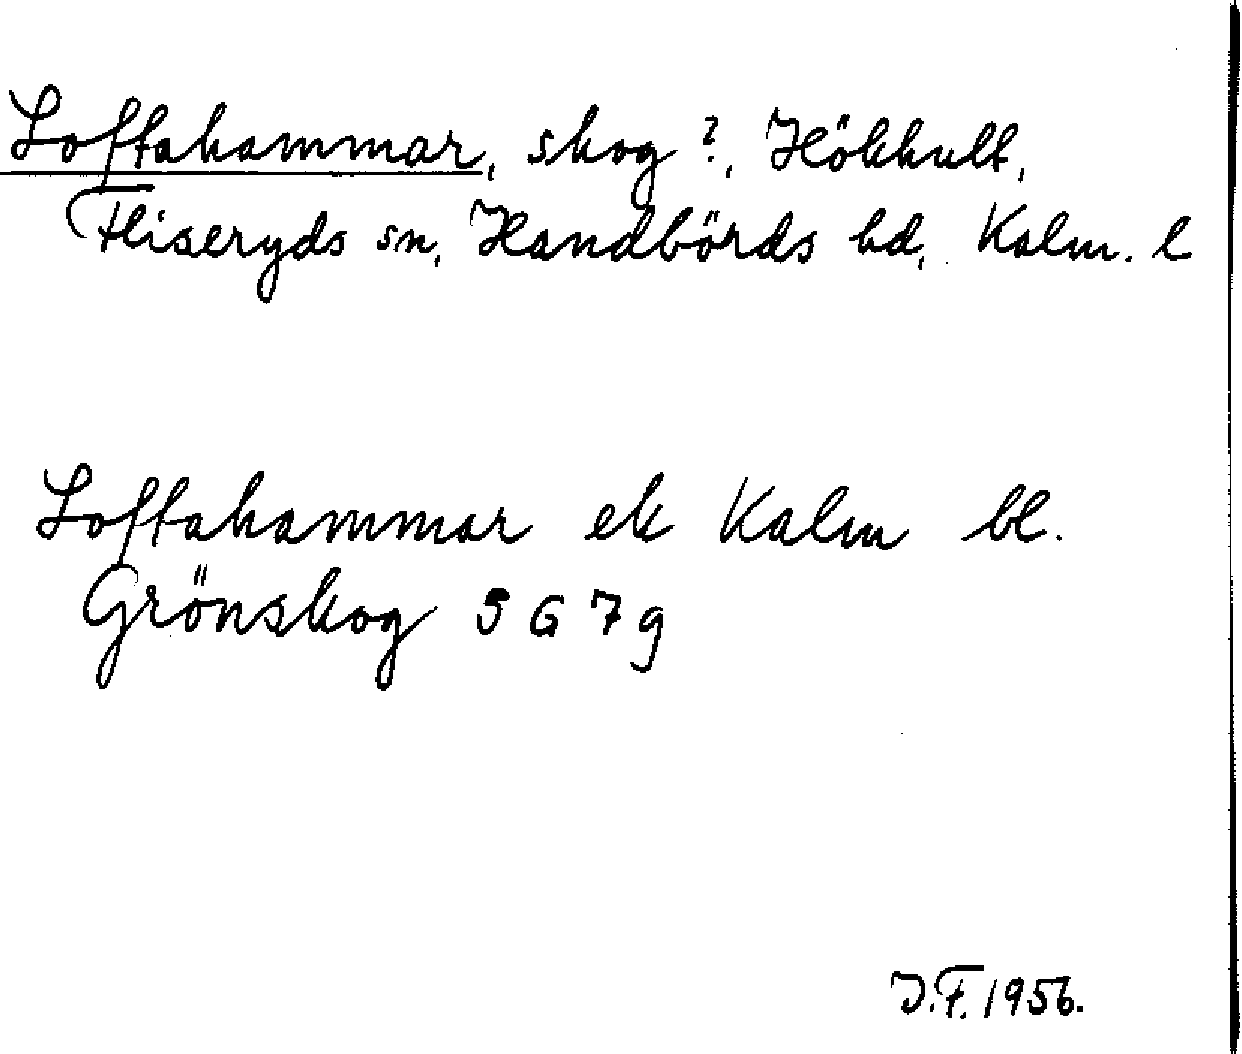 Loftahammar, skog?, Hökhult,
Fliseryds sn, Handbörds hd, Kalm. l
Loftahammar ek Kalm bl.
Grönskog 5 G 7 g
J.F. 1956.